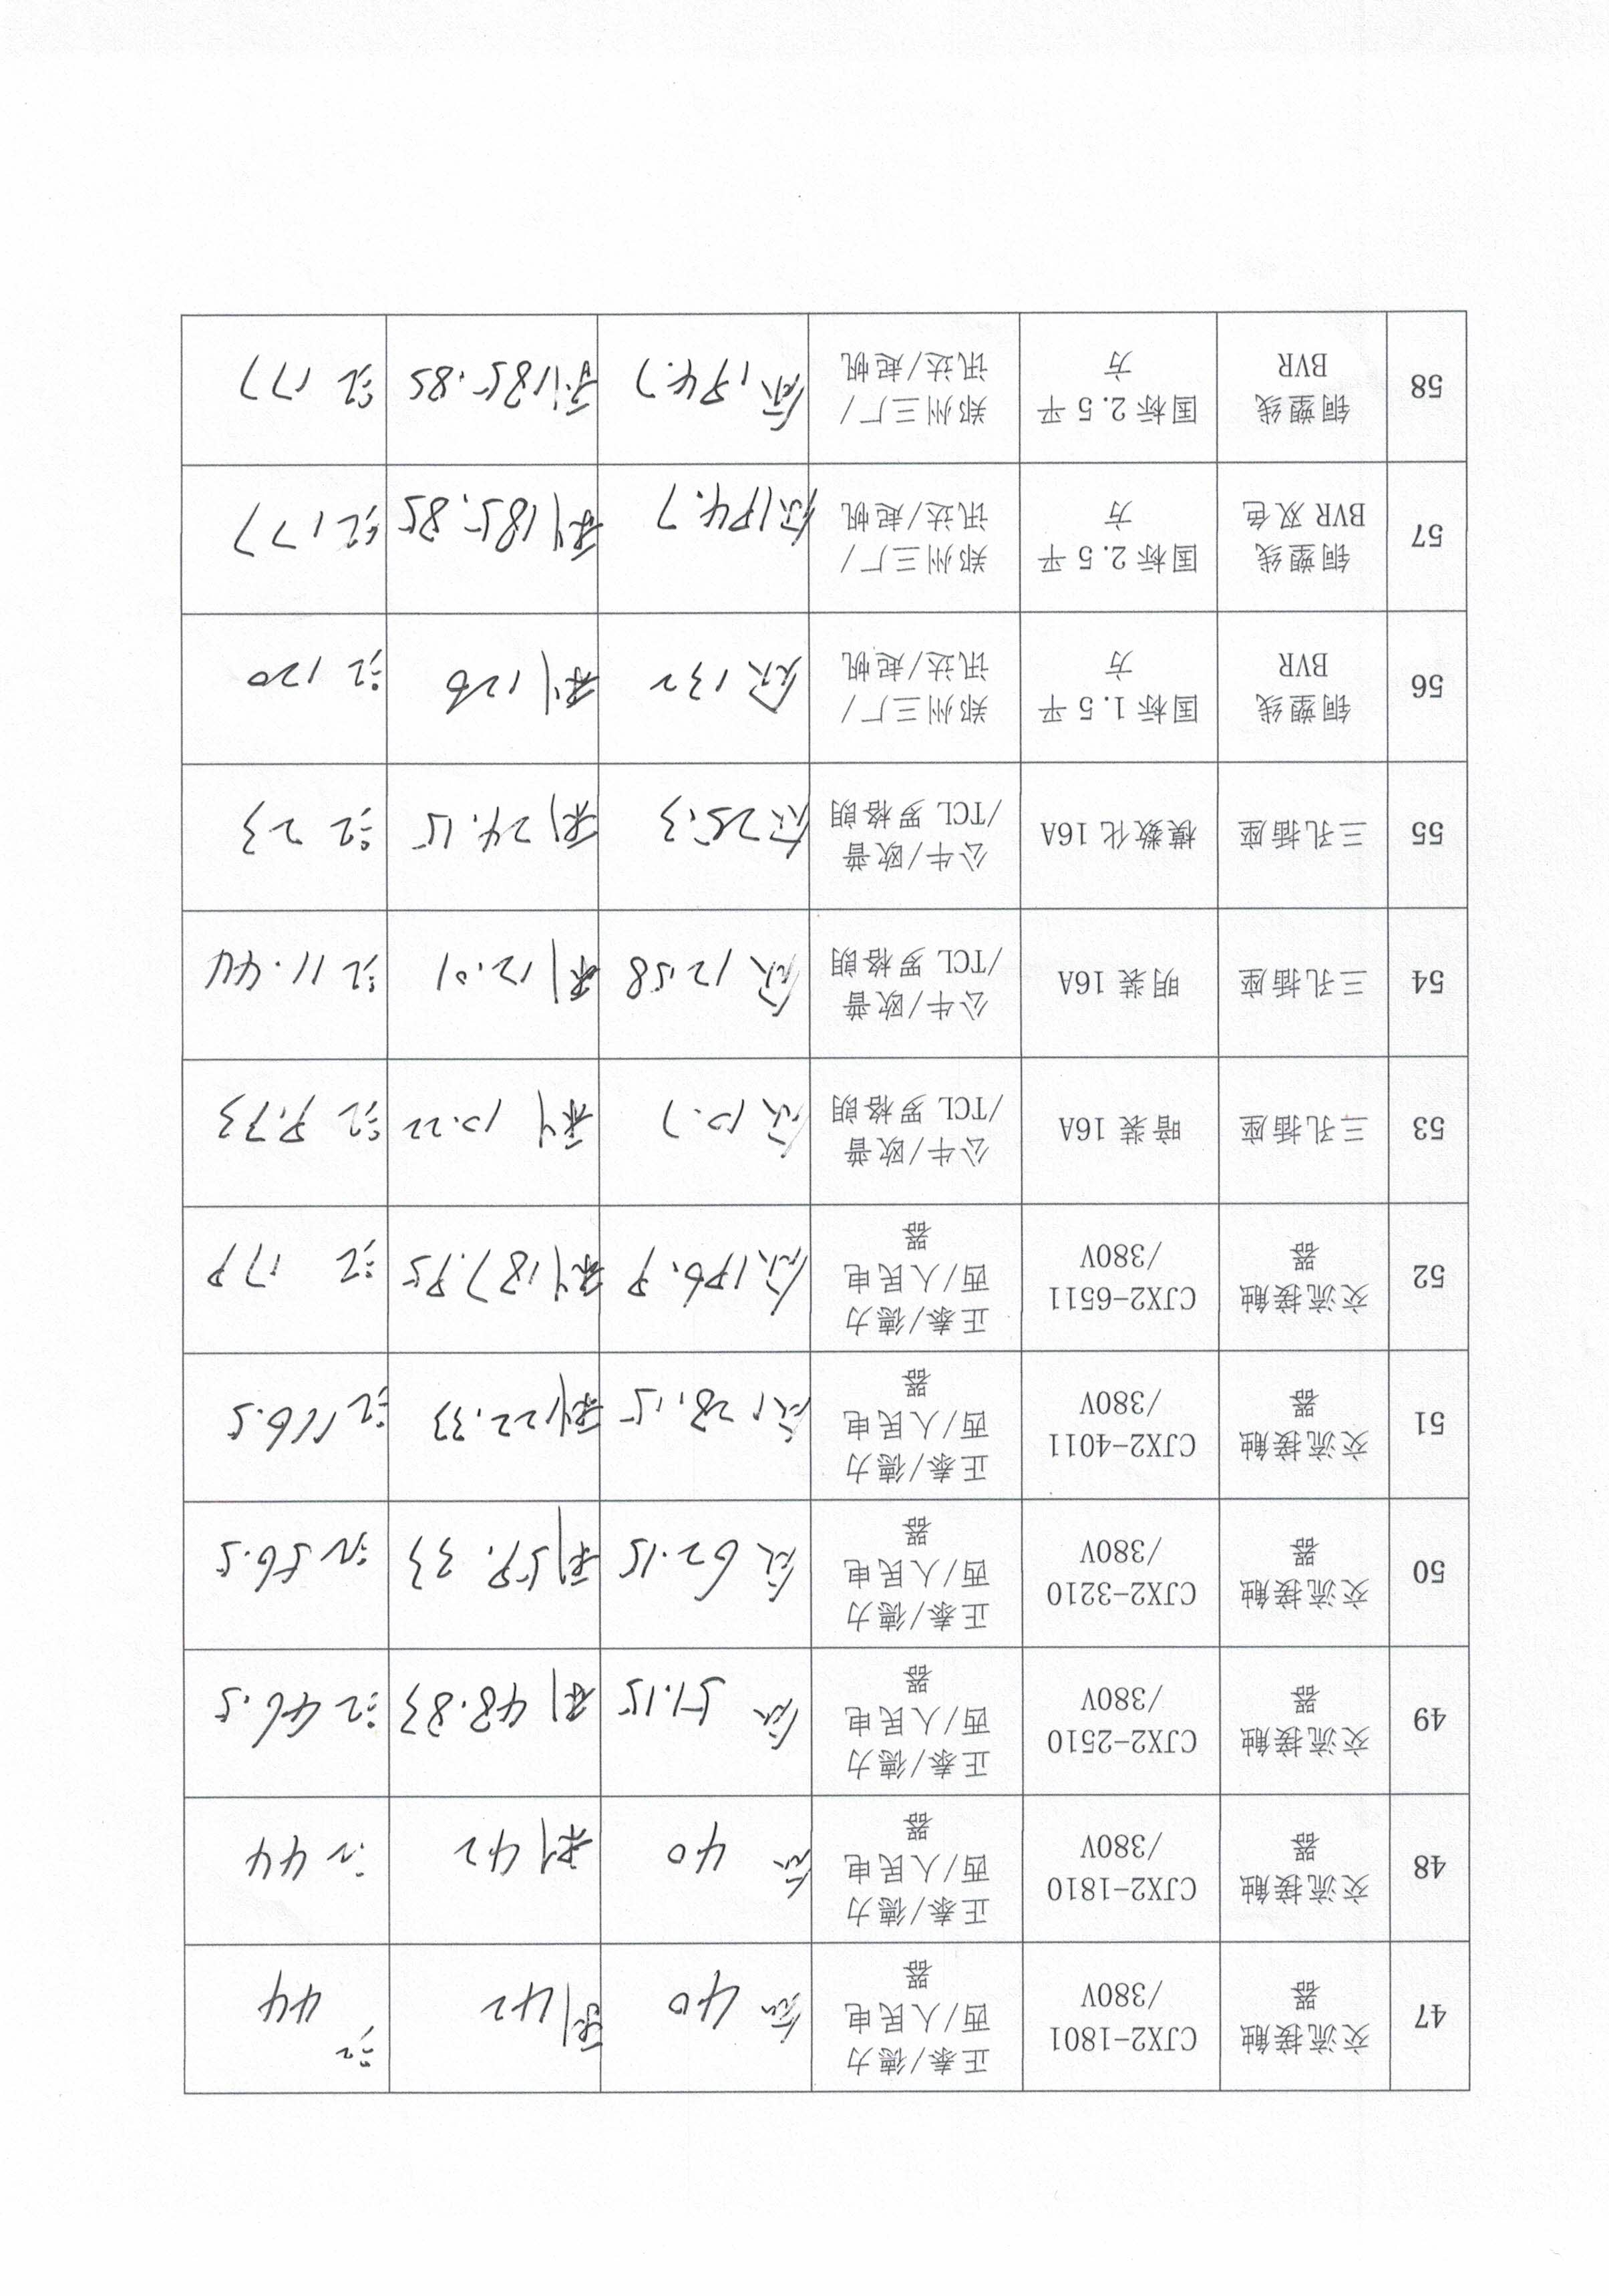 47
交流接触
器
CJX2-1801
/380V
正泰/德力
西/人民电
器
40
利42
44
48
交流接触
器
CJX2-1810
/380V
正泰/德力
西/人民电
器
40
利42
44
49
交流接触
器
CJX2-2510
/380V
正泰/德力
西/人民电
器
51.15
利48.83
46.5
50
交流接触
器
CJX2-3210
/380V
正泰/德力
西/人民电
器
62.15
利59.33
56.5
51
交流接触
器
CJX2-4011
/380V
正泰/德力
西/人民电
器
128.15
利122.33
116.5
52
交流接触
器
CJX2-6511
/380V
正泰/德力
西/人民电
器
196.9
利187.95
179
53
三孔插座
暗装 16A
公牛/欧普
/TCL 罗格朗
10.7
利10.22
9.73
54
三孔插座
明装 16A
公牛/欧普
/TCL 罗格朗
12.58
利12.01
11.44
55
三孔插座
模数化 16A
公牛/欧普
/TCL 罗格朗
25.3
利24.15
23
56
铜塑线
BVR
国标 1.5 平
方
郑州三厂/
讯达/起帆
132
利126
120
57
铜塑线
BVR 双色
国标 2.5 平
方
郑州三厂/
讯达/起帆
194.7
利185.85
177
58
铜塑线
BVR
国标 2.5 平
方
郑州三厂/
讯达/起帆
194.7
利185.85
177